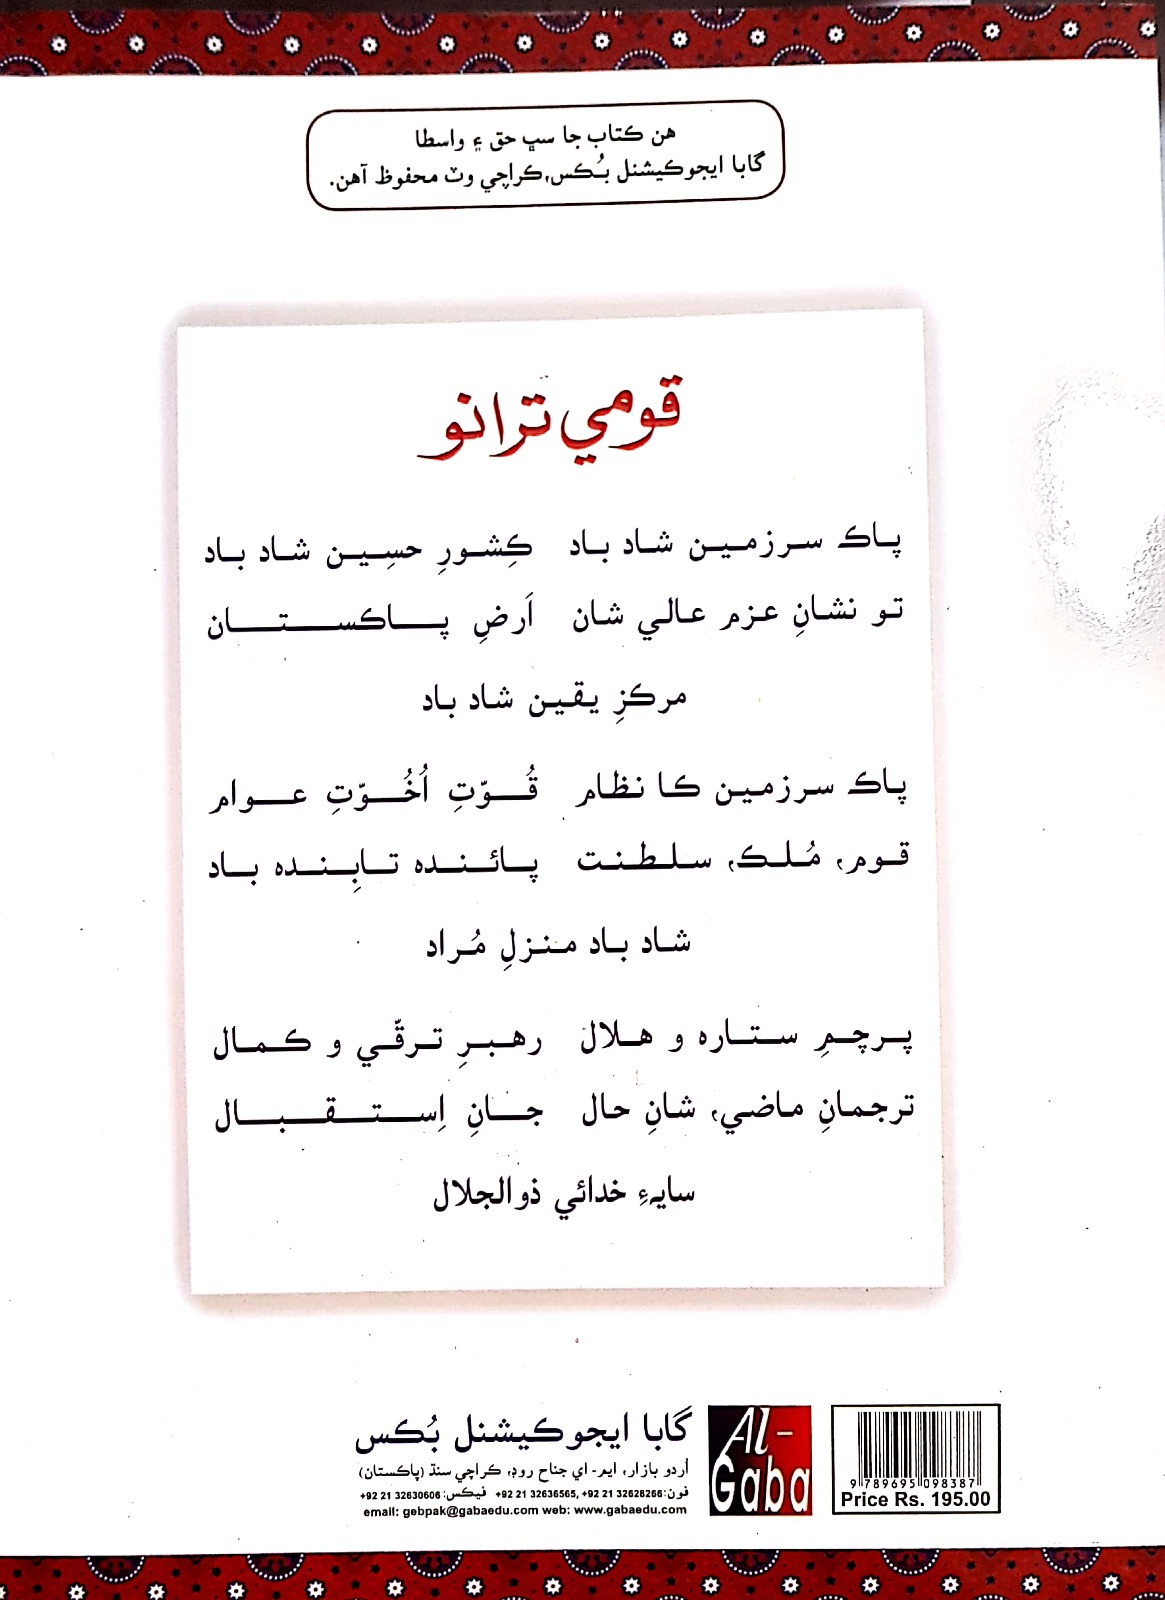 هن ڪتاب جا سڀ حق ۽ واسطا
گابا ايجوڪيشنل بُڪس،ڪراچي وٽ محفوظ آهن.
قومي ترانو
پاڪ سرزمين شاد باد ڪِشورِ حسِين شاد باد
تو نشانِ عزم عالي شان اَرضِ پاڪستان
مرڪزِ يقين شاد باد
پاڪ سرزمين ڪا نظام قُوّتِ اُخُوّتِ عوام
قوم، مُلڪ، سلطنت پائنده تابِنده باد
شاد باد منزلِ مُراد
پرچمِ ستاره و هلال رهبرِ ترقّي و ڪمال
ترجمانِ ماضي، شانِ حال جانِ اِستقبال
سايہءِ خدائي ذوالجلال
گابا ايجوڪيشنل بُڪس
اُردو بازار، ايم-اي جناح روڊ، ڪراچي سنڌ (پاڪستان)
فون:32628266 21 92+ ,32636565 21 92+ فيڪس:32630606 21 92+
email: gebpak@gabaedu.com web: www.gabaedu.com
Al-Gaba
9 789695 098387
Price Rs. 195.00